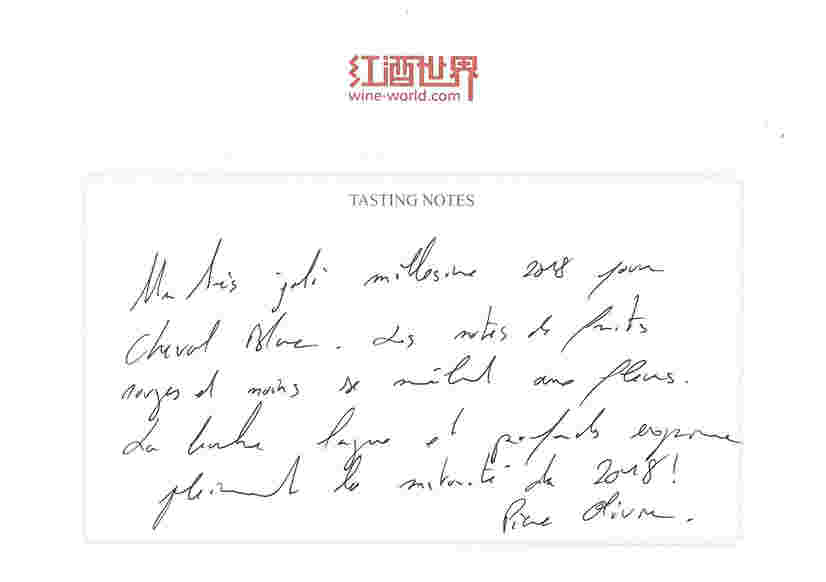 红酒世界
wine-world.com
TASTING NOTES
Un très joli millésime 2018 pour
Cheval Blanc. Les notes de fruits
rouges et noirs se mêlent aux fleurs.
La bouche longue et profonde exprime
pleinement la maturité du 2018!
Pierre Olivier.